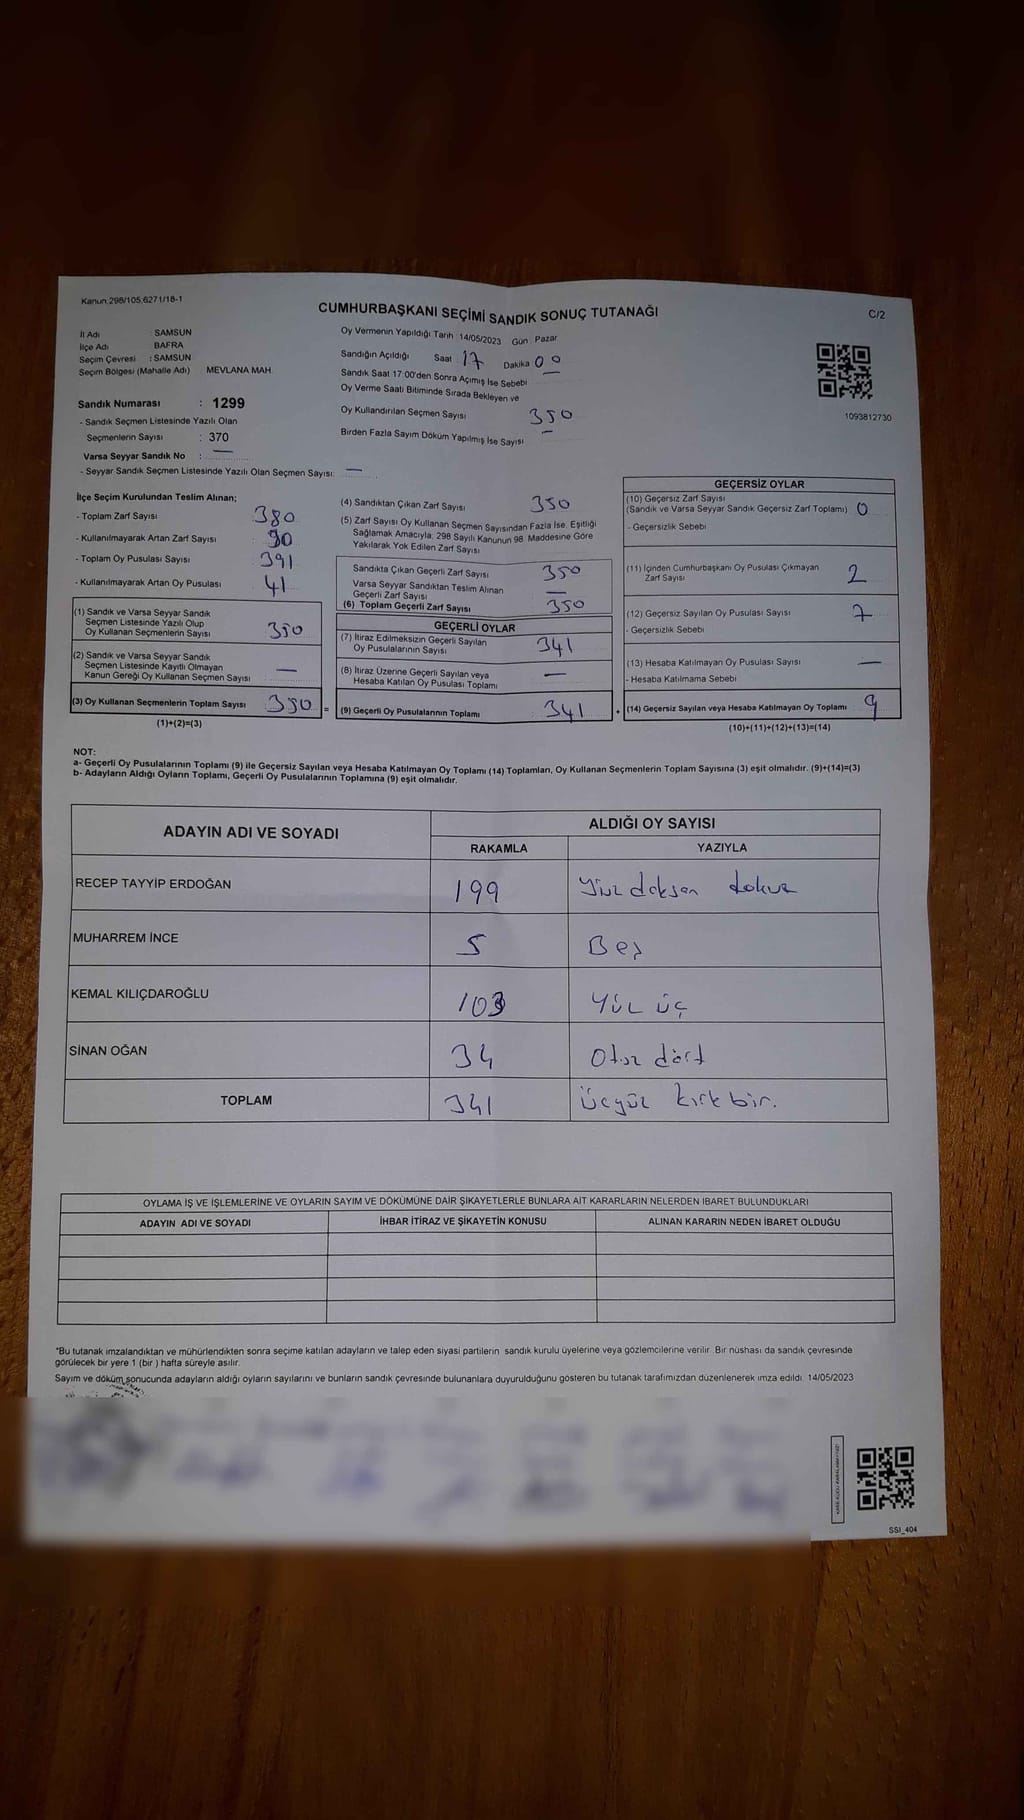 Kanun:298/105,6271/18-1
CUMHURBAŞKANI SEÇİMİ SANDIK SONUÇ TUTANAĞI
C/2
İl Adı SAMSUN
İlçe Adı BAFRA
Seçim Çevresi : SAMSUN
Seçim Bölgesi (Mahalle Adı) MEVLANA MAH.
Sandık Numarası : 1299
- Sandık Seçmen Listesinde Yazılı Olan
Seçmenlerin Sayısı : 370
Varsa Seyyar Sandık No : —
- Seyyar Sandık Seçmen Listesinde Yazılı Olan Seçmen Sayısı: —
Oy Vermenin Yapıldığı Tarih 14/05/2023 Gün : Pazar
Sandığın Açıldığı Saat 17 Dakika 00
Sandık Saat 17:00'den Sonra Açımış İse Sebebi —
Oy Verme Saati Bitiminde Sırada Bekleyen ve
Oy Kullandırılan Seçmen Sayısı 350
Birden Fazla Sayım Döküm Yapılmış İse Sayısı —
1093812730
İlçe Seçim Kurulundan Teslim Alınan;
- Toplam Zarf Sayısı 380
- Kullanılmayarak Artan Zarf Sayısı 30
- Toplam Oy Pusulası Sayısı 391
- Kullanılmayarak Artan Oy Pusulası 41
(1) Sandık ve Varsa Seyyar Sandık
Seçmen Listesinde Yazılı Olup
Oy Kullanan Seçmenlerin Sayısı 350
(2) Sandık ve Varsa Seyyar Sandık
Seçmen Listesinde Kayıtlı Olmayan
Kanun Gereği Oy Kullanan Seçmen Sayısı —
(3) Oy Kullanan Seçmenlerin Toplam Sayısı 350 =
(1)+(2)=(3)
(4) Sandıktan Çıkan Zarf Sayısı 350
(5) Zarf Sayısı Oy Kullanan Seçmen Sayısından Fazla İse, Eşitliği
Sağlamak Amacıyla, 298 Sayılı Kanunun 98. Maddesine Göre
Yakılarak Yok Edilen Zarf Sayısı
Sandıkta Çıkan Geçerli Zarf Sayısı 350
Varsa Seyyar Sandıktan Teslim Alınan
Geçerli Zarf Sayısı —
(6) Toplam Geçerli Zarf Sayısı 350
GEÇERLİ OYLAR
(7) İtiraz Edilmeksizin Geçerli Sayılan
Oy Pusulalarının Sayısı 341
(8) İtiraz Üzerine Geçerli Sayılan veya
Hesaba Katılan Oy Pusulası Toplamı —
(9) Geçerli Oy Pusulalarının Toplamı 341 +
GEÇERSİZ OYLAR
(10) Geçersiz Zarf Sayısı
(Sandık ve Varsa Seyyar Sandık Geçersiz Zarf Toplamı) 0
- Geçersizlik Sebebi
(11) İçinden Cumhurbaşkanı Oy Pusulası Çıkmayan
Zarf Sayısı 2
(12) Geçersiz Sayılan Oy Pusulası Sayısı 7
- Geçersizlik Sebebi
(13) Hesaba Katılmayan Oy Pusulası Sayısı —
- Hesaba Katılmama Sebebi
(14) Geçersiz Sayılan veya Hesaba Katılmayan Oy Toplamı 9
(10)+(11)+(12)+(13)=(14)
NOT:
a- Geçerli Oy Pusulalarının Toplamı (9) ile Geçersiz Sayılan veya Hesaba Katılmayan Oy Toplamı (14) Toplamları, Oy Kullanan Seçmenlerin Toplam Sayısına (3) eşit olmalıdır. (9)+(14)=(3)
b- Adayların Aldığı Oyların Toplamı, Geçerli Oy Pusulalarının Toplamına (9) eşit olmalıdır.
ADAYIN ADI VE SOYADI ALDIĞI OY SAYISI
RAKAMLA YAZIYLA
RECEP TAYYİP ERDOĞAN 199 Yüz doksan dokuz
MUHARREM İNCE 5 Beş
KEMAL KILIÇDAROĞLU 103 Yüz üç
SİNAN OĞAN 34 Otuz dört
TOPLAM 341 Üçyüz kırkbir.
OYLAMA İŞ VE İŞLEMLERİNE VE OYLARIN SAYIM VE DÖKÜMÜNE DAİR ŞİKAYETLERLE BUNLARA AİT KARARLARIN NELERDEN İBARET BULUNDUKLARI
ADAYIN ADI VE SOYADI İHBAR İTİRAZ VE ŞİKAYETİN KONUSU ALINAN KARARIN NEDEN İBARET OLDUĞU
*Bu tutanak imzalandıktan ve mühürlendikten sonra seçime katılan adayların ve talep eden siyasi partilerin sandık kurulu üyelerine veya gözlemcilerine verilir. Bir nüshası da sandık çevresinde
görülecek bir yere 1 (bir ) hafta süreyle asılır.
Sayım ve döküm sonucunda adayların aldığı oyların sayılarını ve bunların sandık çevresinde bulunanlara duyurulduğunu gösteren bu tutanak tarafımızdan düzenlenerek imza edildi. 14/05/2023
SSI_404